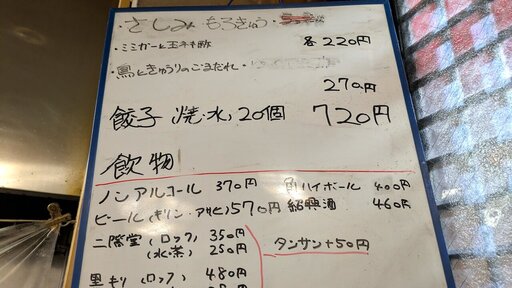 ・さしみ もろきゅう・
・ミミガーと玉ネギ酢 各220円
・鳥ときゅうりのごまだれ・
270円
餃子 焼・水 20個 720円
飲物
ノンアルコール 370円
ビール(キリン・アサヒ)570円
二階堂(ロック) 350円
(水・茶) 250円
里キリ(ロック) 480円
角ハイボール 400円
紹興酒 460円
タンサン+50円